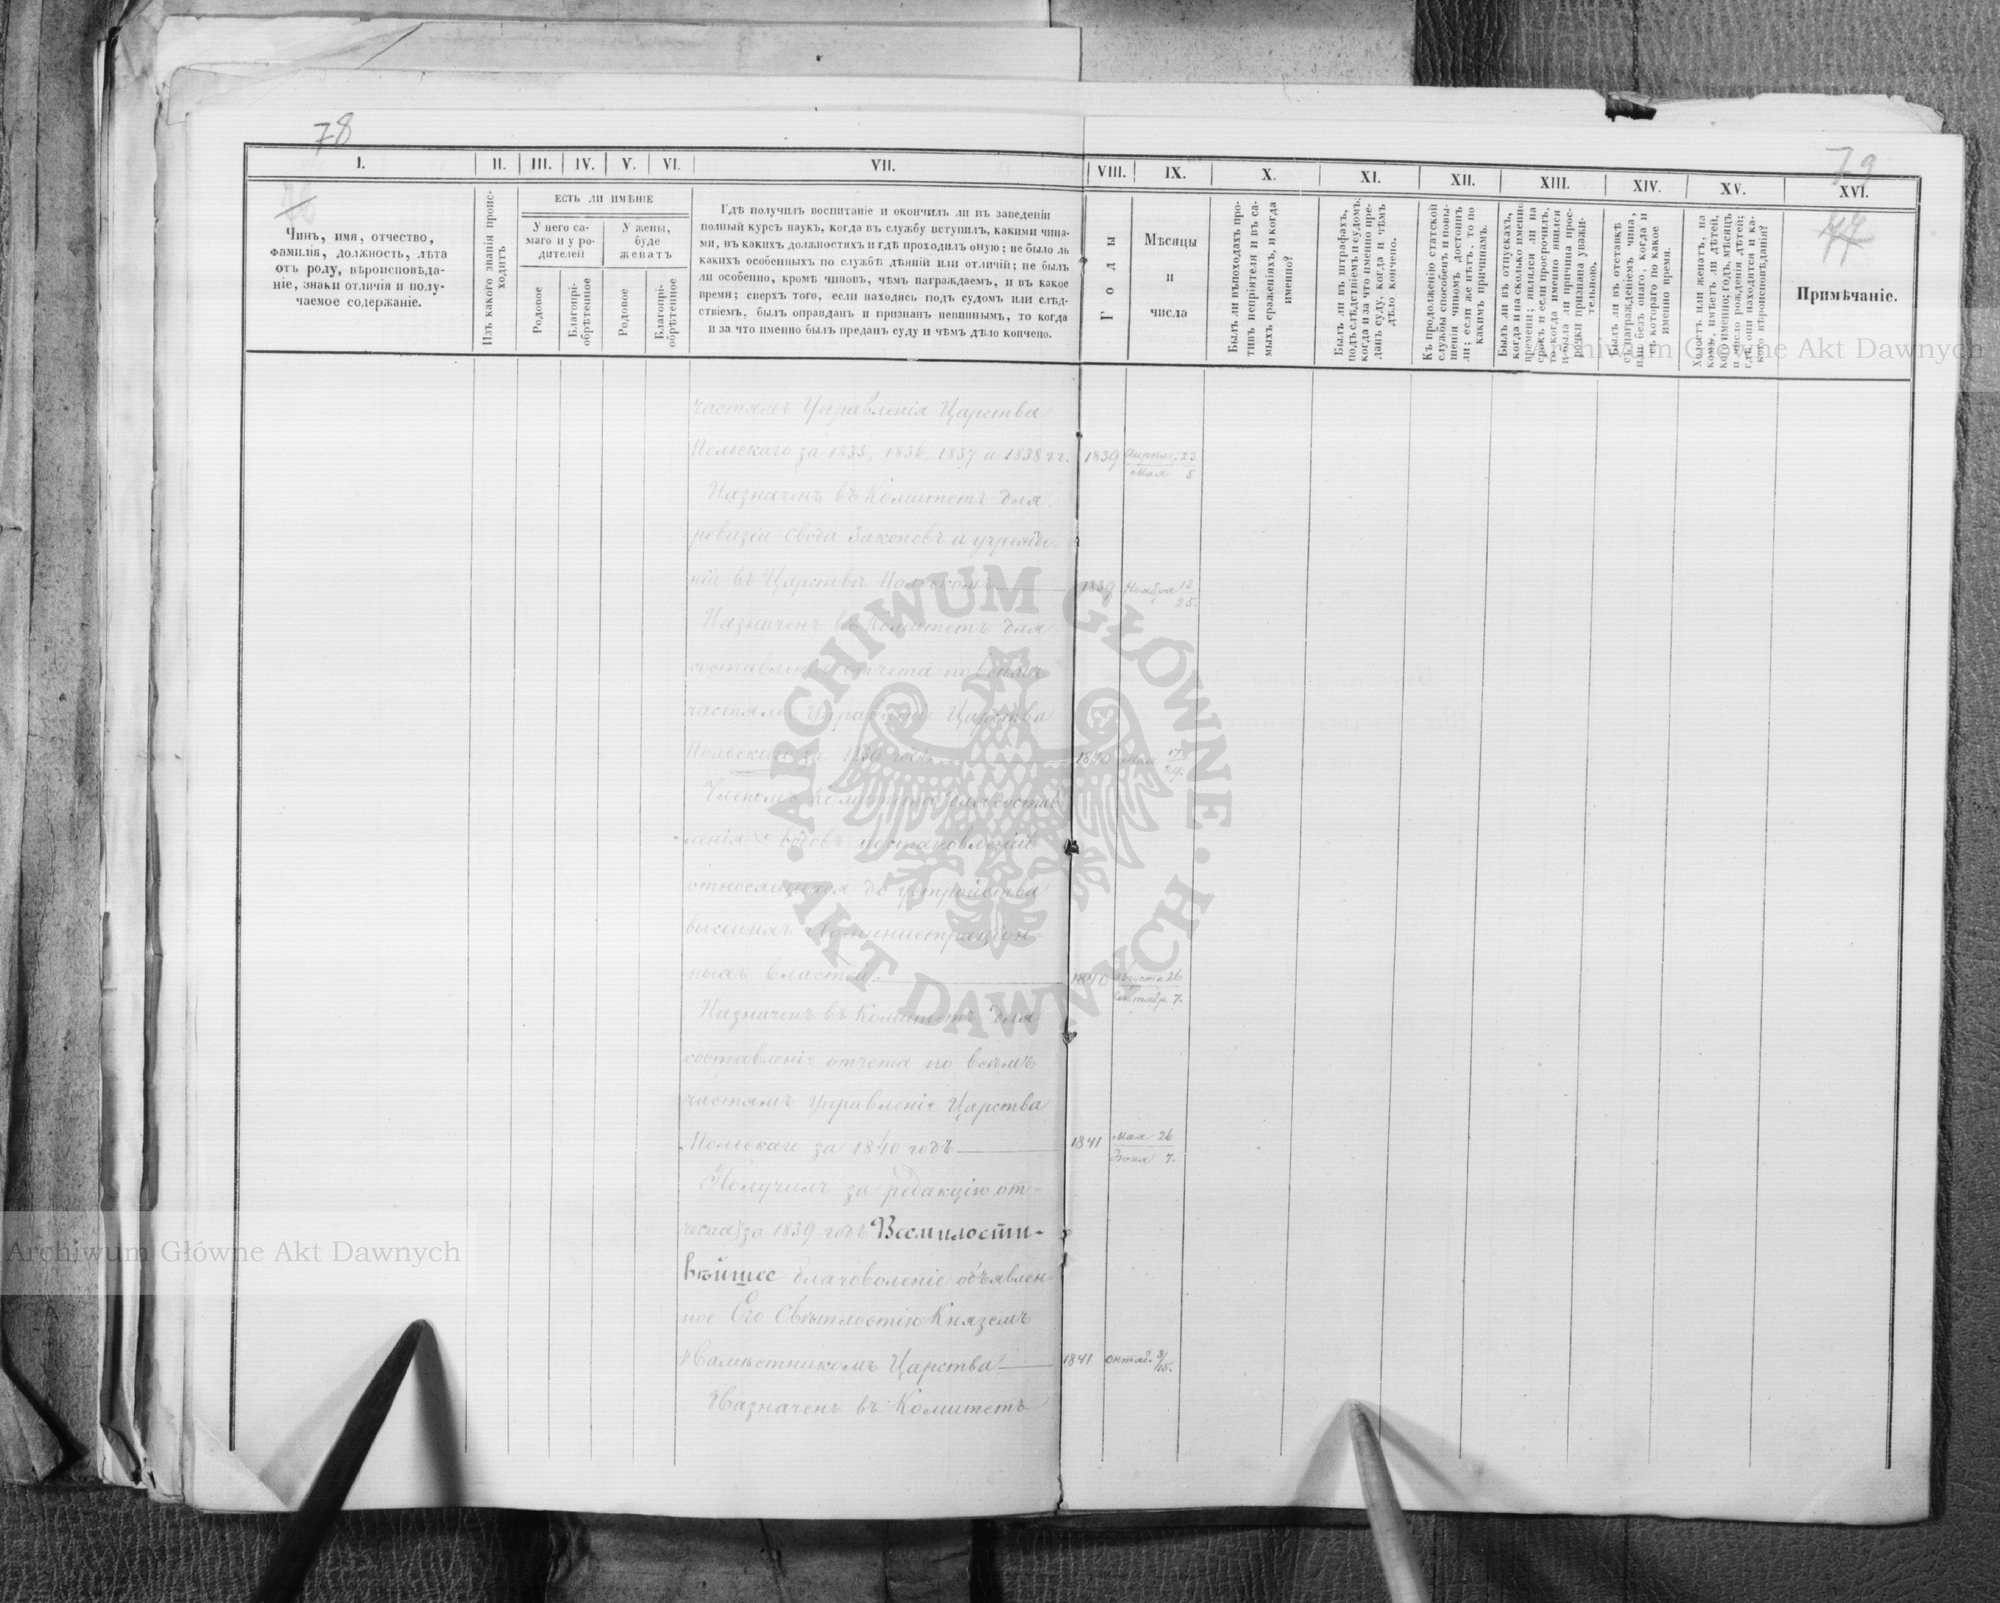 78
79
I.
II.
III.
IV.
V.
VI.
VII.
VIII.
IX.
X.
XI.
XII.
XIII.
XIV.
XV.
XVI.
Чинъ, имя, отчество,
фамилія, должность, лѣта
отъ роду, вѣроисповѣда-
ніе, знаки отличія и полу-
чаемое содержаніе.
Изъ какого званія проис-
ходитъ
ЕСТЬ ЛИ ИМѢНІЕ
У него са-
маго и у ро-
дителей
У жены,
буде
женатъ
Родовое
Благопрі-
обрѣтенное
Родовое
Благопрі-
обрѣтенное
Гдѣ получилъ воспитаніе и окончилъ ли въ заведеніи
полный курсъ наукъ, когда въ службу вступилъ, какими чина-
ми, въ какихъ должностяхъ и гдѣ проходилъ оную; не было ль
какихъ особенныхъ по службѣ дѣяній или отличій; не былъ
ли особенно, кромѣ чиновъ, чѣмъ награждаемъ, и въ какое
время; сверхъ того, если находясь подъ судомъ или слѣд-
ствіемъ, былъ оправданъ и признанъ невиннымъ, то когда
и за что именно былъ преданъ суду и чѣмъ дѣло кончено.
Годы
Мѣсяцы
и
числа
Былъ ли въ походахъ про-
тивъ непріятеля и въ са-
мыхъ сраженіяхъ, и когда
именно?
Былъ ли въ штрафахъ,
подъ слѣдствіемъ и судомъ;
когда и за что именно пре-
данъ суду, когда и чѣмъ
дѣло кончено.
Къ продолженію статской
службы способенъ и повы-
шенія чиномъ достоинъ
ли; если же нѣтъ, то по
какимъ причинамъ.
Былъ ли въ отпускахъ,
когда и на сколько именно
времени; явился ли на
срокъ и если просрочилъ,
то когда именно явился
и была ли причина прос-
рочки признана уважи-
тельною.
Былъ ли въ отставкѣ
съ награжденіемъ чина,
или безъ онаго, когда и
съ котораго по какое
именно время.
Холостъ или женатъ, на
комъ, имѣетъ ли дѣтей,
кого именно; годъ, мѣсяцъ
и число рожденія дѣтей;
гдѣ они находятся и ка-
кого вѣроисповѣданія?
Примѣчаніе.
частямъ Управленія Царства
Польскаго за 1835, 1836, 1837 и 1838 гг. 1839 Апрѣл. 23 / Мая 5
Назначенъ въ Комитетъ для
ревизіи Свода Законовъ и учрежде-
ній въ Царствѣ Польскомъ 1839 Ноября 13/25.
Назначенъ въ Комитетъ для
составленія отчета по всѣмъ
частямъ Управленія Царства
Польскаго за 1839 годъ 1840 Мая 17/29.
Членомъ Комитета для состав-
ленія Сводовъ постановленій
относящихся до устройства
высшихъ Администрацiон-
ныхъ властей. 1840 Августа 26 / Сентябр. 7.
Назначенъ въ Комитетъ для
составленія отчета по всѣмъ
частямъ Управленія Царства
Польскаго за 1840 годъ 1841 Мая 26 / Іюня 7.
Получилъ за редакцію от-
чета за 1839 годъ Всемилости-
вѣйшее благоволеніе объявлен-
ное Его Свѣтлостію Княземъ
Намѣстникомъ Царства 1841 октяб. 3/15.
Назначенъ въ Комитетъ
ARCHIWUM GŁÓWNE AKT DAWNYCH
Archiwum Główne Akt Dawnych
Archiwum Główne Akt Dawnych